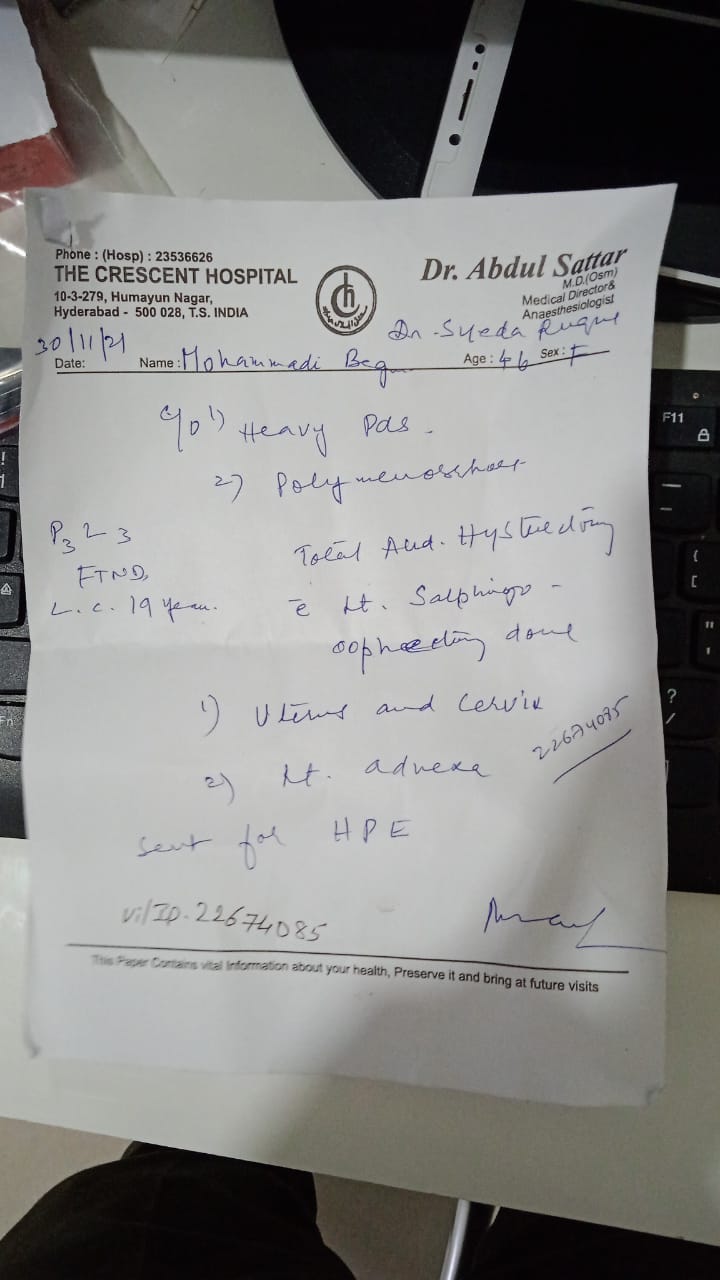 Phone : (Hosp) : 23536626
THE CRESCENT HOSPITAL
10-3-279, Humayun Nagar,
Hyderabad - 500 028, T.S. INDIA
Dr. Abdul Sattar
M.D.(Osm)
Medical Director &
Anaesthesiologist
Dr. Syeda
30/11/21
Date: Name : Mohammadi Beg Age : 46 Sex : F
C/o 1) Heavy Pds.
2)
P3 L 3
FTND,
L.C. 19 year.
Total Abd.
c̄ Salphingo -
done
1) Uterus and Cervix
2) adnexa
22674085
Sent for HPE
Vi/ID. 22674085
This Paper Contains vital Information about your health, Preserve it and bring at future visits
F11